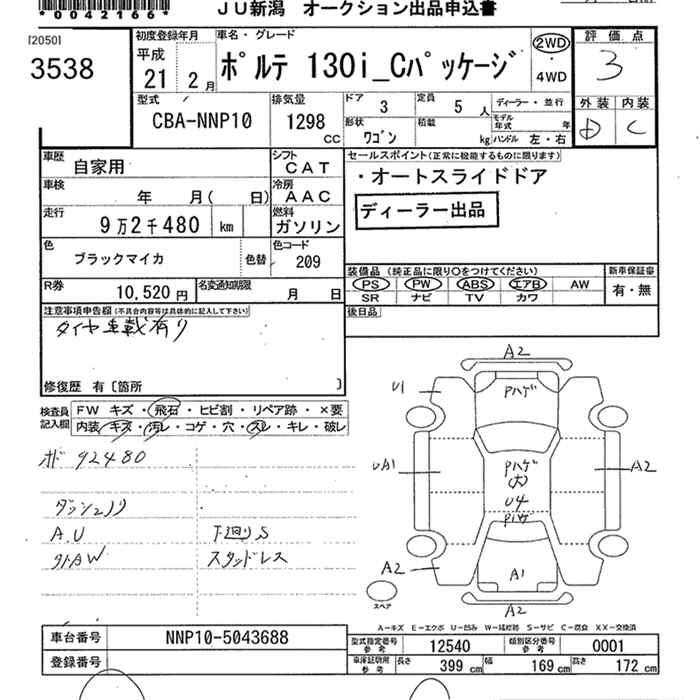 *0042166*
JU新潟 オークション出品申込書
[2050]
3538
初度登録年月
平成
21 2 月
車名・グレード
ポルテ 130i_Cパッケージ
2WD
4WD
評価点
3
型式
CBA-NNP10
排気量
1298 CC
ドア 3
定員 5 人
ディーラー・並行
形状 ワゴン
積載 kg
モデル年式 年
ハンドル 左・右
外装 内装
D C
車歴 自家用
シフト CAT
車検 年 月( 日)
冷房 AAC
走行 9万2千480 km
燃料 ガソリン
色 ブラックマイカ 色替
色コード 209
セールスポイント(正常に機能するものに限ります)
・オートスライドドア
ディーラー出品
装備品(純正品に限り○をつけてください)
新車保証書
PS PW ABS エアB AW
SR ナビ TV カワ
有・無
R券 10,520 円
名変通知期限 月 日
後日品
注意事項申告欄(不具合内容等は具体的に記入して下さい)
タイヤ車載有り
修復歴 有〔箇所 〕
検査員記入欄
FW キズ・飛石・ヒビ割・リペア跡・×要
内装・キズ・汚レ・コゲ・穴・スレ・キレ・破レ
オド 92480
ダッシュノリ
A.U
下廻りS
スタッドレス
A2
U1
Pハゲ
UA1
Pハゲ
(大)
U4
Pハゲ
A2
A2
A1
A2
スペア
A-キズ E-エクボ U-凹み W-補修跡 S-サビ C-腐食 XX-交換済
車台番号 NNP10-5043688
登録番号
型式指定番号 参考 12540
類別区分番号 参考 0001
車庫証明用 参考
長さ 399 cm
幅 169 cm
高さ 172 cm